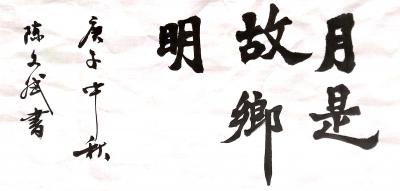 月是
故鄉
明
庚子中秋
陈文斌書